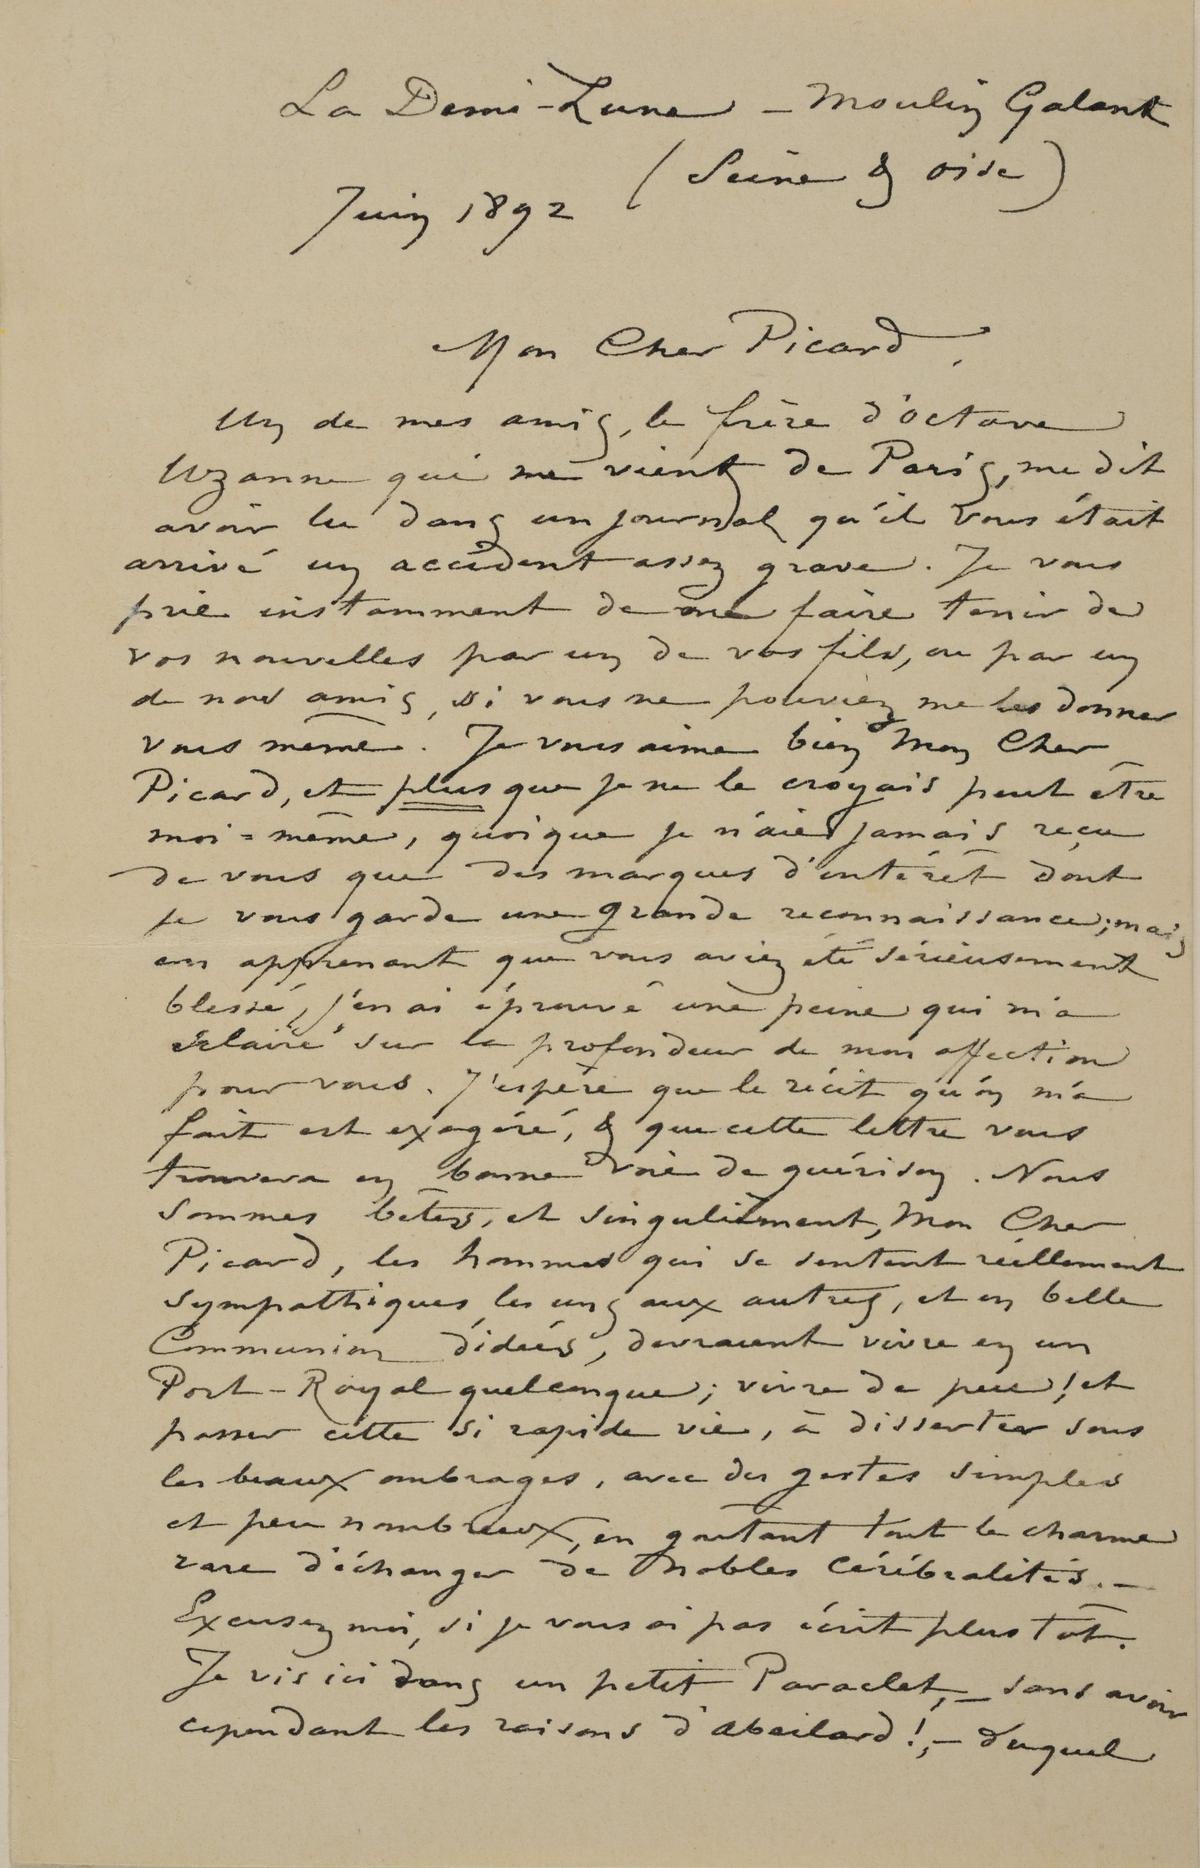 La Demi-Lune – Moulin Galant
(Seine & oise)
Juin 1892
Mon Cher Picard,
Un de mes amis, le frère d'octave
Uzanne qui me vient de Paris, me dit
avoir lu dans un journal qu'il vous était
arrivé un accident assez grave. Je vous
prie instamment de me faire tenir de
vos nouvelles par un de vos fils, ou par un
de nos amis, si vous ne pouviez me les donner
vous même. Je vous aime bien Mon Cher
Picard, et plus que je ne le croyais peut être
moi=même, quoique je n'aie jamais reçu
de vous que des marques d'intérêt dont
je vous garde une grande reconnaissance; mais
en apprenant que vous aviez été sérieusement
blessé, j'en ai éprouvé une peine qui m'a
éclairé sur la profondeur de mon affection
pour vous. J'espère que le récit qu'on m'a
fait est exagéré, & que cette lettre vous
trouvera en bonne voie de guérison. Nous
sommes bêtes, et singulièrment, Mon Cher
Picard, les hommes qui se sentent réellement
sympathiques les uns aux autres, et en belle
Communion d'idées, devraient vivre en un
Port-Royal quelconque; vivre de peu! et
passer cette si rapide vie, à disserter sous
les beaux ombrages, avec des gestes simples
et peu nombreux, en goutant tout le charme
rare d'échanger de nobles Cérébralités. –
Excusez moi, si je vous ai pas écrit plus tôt.
Je vis ici dans un petit Paraclet, – sans avoir
cependant les raisons d'Abeilard!, – duquel